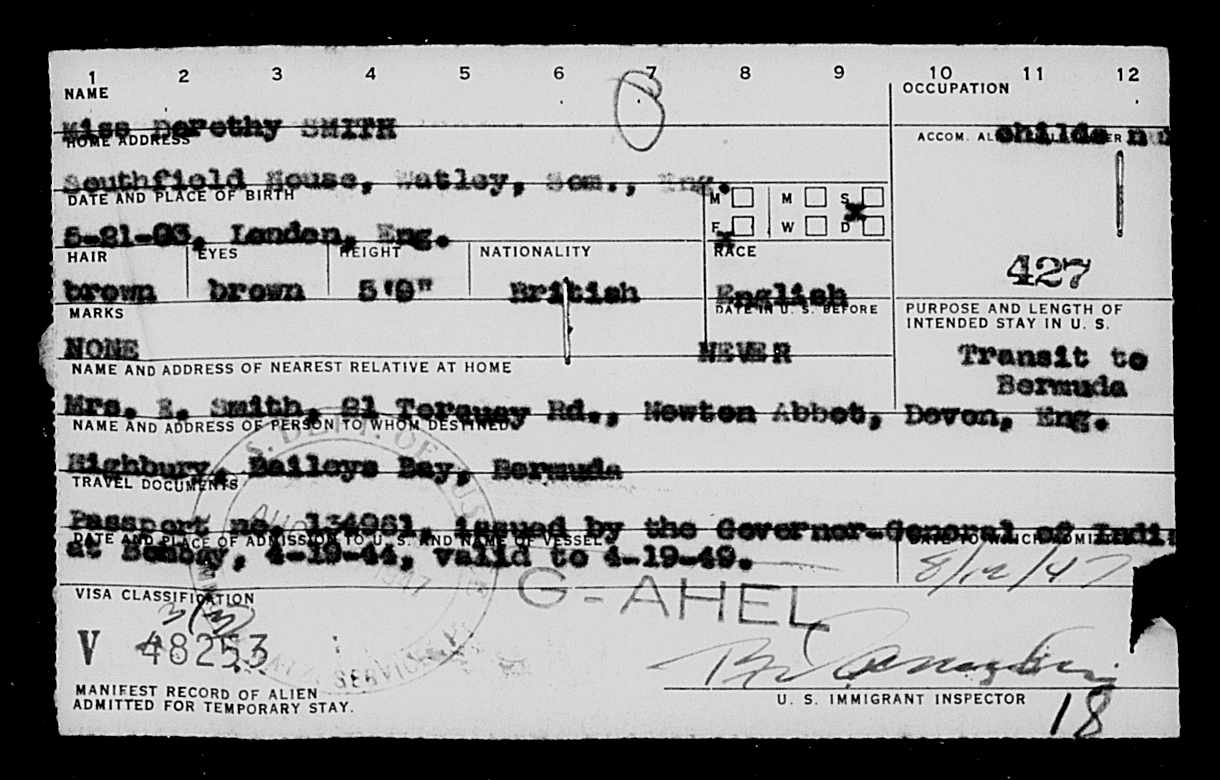 1 2 3 4 5 6 7 8 9 10 11 12
NAME
OCCUPATION
Miss Dorothy SMITH
childs nu
HOME ADDRESS
ACCOM.
Southfield House, Watley, Som., Eng.
DATE AND PLACE OF BIRTH
M M S
5-21-03, London, Eng.
F W D
x x
HAIR EYES HEIGHT NATIONALITY RACE
427
brown brown 5'0" British English
MARKS
DATE IN U. S. BEFORE
PURPOSE AND LENGTH OF
INTENDED STAY IN U. S.
NONE NEVER
Transit to
Bermuda
NAME AND ADDRESS OF NEAREST RELATIVE AT HOME
Mrs. E. Smith, 21 Torquay Rd., Newton Abbot, Devon, Eng.
NAME AND ADDRESS OF PERSON TO WHOM DESTINED
Highbury, Baileys Bay, Bermuda
TRAVEL DOCUMENTS
Passport no. 134961, issued by the Governor-General of Indi
DATE AND PLACE OF ADMISSION TO U. S. AND NAME OF VESSEL
DATE TO WHICH ADMITTED
at Bombay, 4-19-44, valid to 4-19-49.
8/12/47
G-AHEL
VISA CLASSIFICATION
3(3)
V 48253
MANIFEST RECORD OF ALIEN
ADMITTED FOR TEMPORARY STAY.
U. S. IMMIGRANT INSPECTOR
18